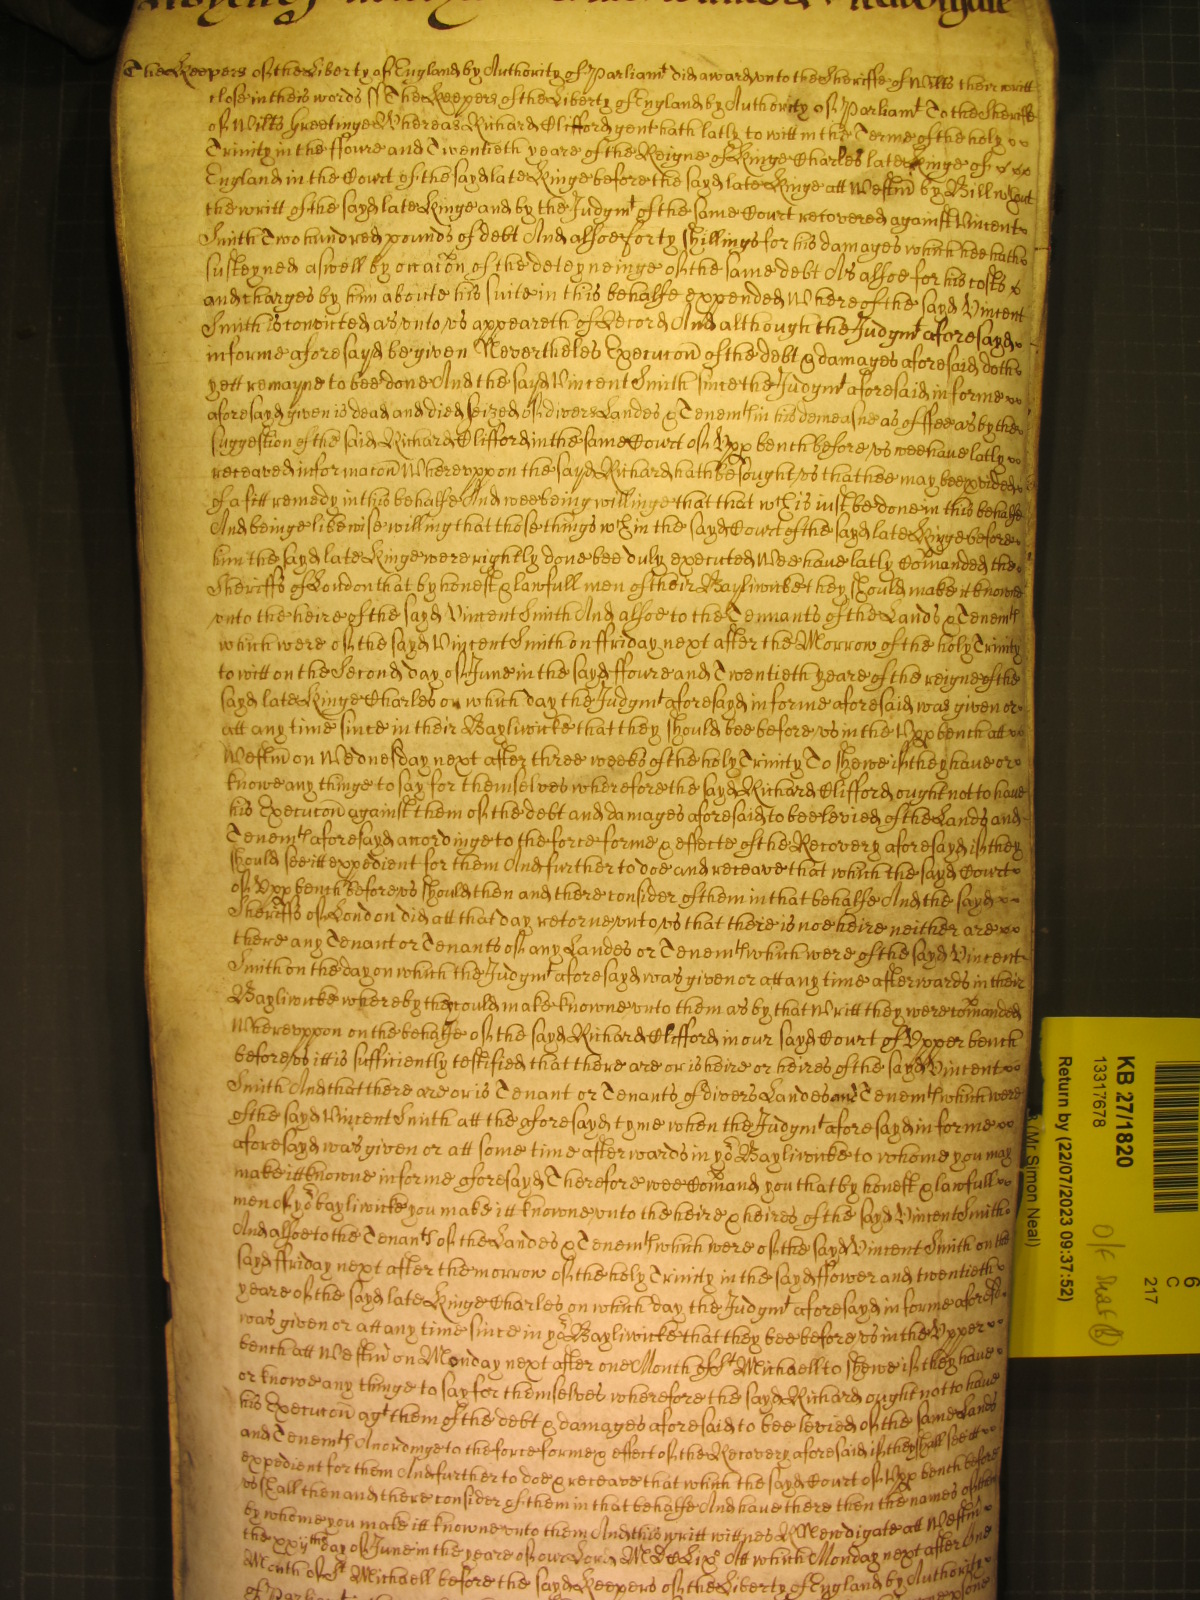 Newdigate
The Keepers of the Liberty of England by Authority of Parliamt did award unto the Sheriffe of Wilts their writt
close in theis words ss The Keepers of the Liberty of England by Authority of Parliamt To the Sheriffe
of Wilts Greetinge Whereas Richard Clifford gent hath latly to witt in the Terme of the holy
Trinity in the ffoure and Twentieth yeare of the Reigne of Kinge Charles late Kinge of
England in the Court of the sayd late Kinge before the sayd late Kinge att Westm̃ by Bill wthout
the writt of the sayd late Kinge and by the Judgmt of the same Court recovered against Vincent
Smith Two hundred pounds of debt And alsoe forty shillings for his damages which hee hath
susteyned aswell by occac̃on of the deteyneinge of the same debt As alsoe for his costs
and charges by him aboute his suite in this behalfe expended Whereof the sayd Vincent
Smith is convicted as unto us appeareth of Record And although the Judgmt aforesayd
in forme aforesayd be given Nevertheles Execuc̃on of the debt & damages aforesaid doth
yett remayne to bee done And the said Vincent Smith since the Judgmt aforesaid in forme
aforesayd given is dead and died seized of divers Landes & Tenemts in his demeasne as of ffee as by the
suggestion of the said Richard Clifford in the same Court of Upp bench before us wee have latly
receaved informac̃on Whereuppon the sayd Richard hath besought us that hee may bee p̱vided
of a fitt remedy in this behalfe And wee being willinge that that wch is just be done in this behalfe
And beinge likewise willing that those things wch in the sayd Court of the sayd late Kinge before
him the sayd late Kinge were rightly done bee duly executed Wee have latly Com̃anded the
Sheriffs of London that by honest & lawfull men of their Bayliwicke they should make it knowne
unto the heire of the sayd Vincent Smith And alsoe to the Tennants of the Lands & Tenemts
which were of the sayd Vincent Smith on ffriday next after the Morrow of the holy Trinity
to witt on the Second day of June in the sayd ffoure and Twentieth yeare of the reigne of the
sayd late Kinge Charles on which day the Judgmt aforesayd in forme aforesaid was given or
att any time since in their Bayliwicke that they should bee before us in the Upp bench att
Westm̃ on Wednesday next after three weeks of the holy Trinity To shewe if they have or
knowe any thinge to say for themselves wherefore the sayd Richard Clifford ought not to have
his Execuc̃on against them of the debt and damages aforesaid to bee levied of the Lands and
Tenemts aforesayd accordinge to the force forme & effecte of the Recovery aforesayd if they
should see itt expedient for them And further to doe and receave that which the sayd Court
of Upp bench before us should then and there consider of them in that behalfe And the sayd
Sheriffs of London did att that day retorne unto us that there is noe heire neither are
there any Tenant or Tenants of any Landes or Tenemts which were of the sayd Vincent
Smith on the day on which the Judgmt aforesayd was given or att any time afterwards in their
Bayliwicke whereby they could make knowne unto them as by that Writt they were com̃anded
Whereuppon on the behalfe of the sayd Richard Clifford in our sayd Court of Upper bench
before us itt is sufficiently testified that there are or is heire or heires of the sayd Vincent
Smith And that there are or is Tenant or Tenants of divers Landes and Tenemts which were
of the sayd Vincent Smith att the aforesayd tyme when the Judgmt aforesayd in forme
aforesayd was given or att some time afterwards in yor Bayliwicke to whome you may
make itt knowne in forme aforesayd Therefore wee Com̃and you that by honest & lawfull
men of yor bayliwicke you make itt knowne unto the heire & heires of the sayd Vincent Smith
And alsoe to the Tenants of the Landes & Tenemts which were of the sayd Vincent Smith on the
sayd ffriday next after the morrow of the holy Trinity in the sayd ffower and twentieth
yeare of the sayd late Kinge Charles on which day the Judgmt aforesayd in forme aforesd
was given or att any time since in yor Bayliwicke that they bee before us in the Upper
bench att Westm̃ on Monday next after one Month of St Michaell to shewe if they have
or knowe any thinge to say for themselves wherefore the sayd Richard ought not to have
his Execuc̃on agt them of the debt & damages aforesaid to bee levied of the same Lands
and Tenemts Accordinge to the force forme & effect of the Recovery aforesaid if they shall see itt
expedient for them And further to doe & receave that which the sayd Court of Upp bench before
us shall then and there consider of them in that behalfe And have there then the names of them
by whome you make itt knowne unto them And this writt wittnes R Newdigate att Westm̃
the xxijth day of June in the yeare of our Lord MDCLix Att which Monday next after one
Month of St Michaell before the sayd Keepers of the Liberty of England by Authority
KB 27/1820
13317678
Return by (22/07/2023 09:37:52)
(Mr Simon Neal)
6
C
217